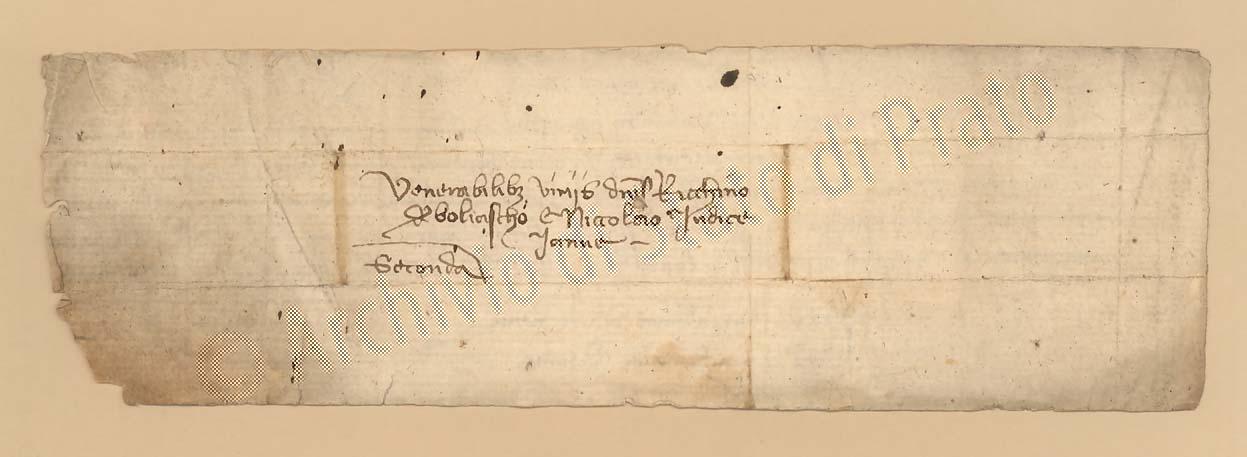 Venerabilibz viriis dnis Ricchino
de bolicischo e Niccolaio Judice
Janue
Seconda
© Archivio di Stato di Prato